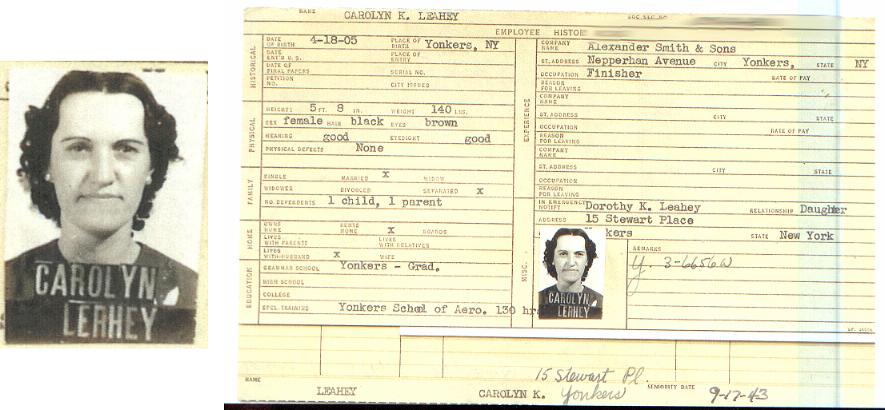 CAROLYN
LERHEY
NAME CAROLYN K. LEAHEY SOC. SEC. NO.
EMPLOYEE HISTO
HISTORICAL
DATE OF BIRTH 4-18-05 PLACE OF BIRTH Yonkers, NY
DATE ENT'D U.S. PLACE OF ENTRY
DATE OF FINAL PAPERS SERIAL NO.
PETITION NO. CITY ISSUED
PHYSICAL
HEIGHT: 5 FT. 8 IN. WEIGHT 140 LBS.
SEX female HAIR black EYES brown
HEARING good EYESIGHT good
PHYSICAL DEFECTS None
FAMILY
SINGLE MARRIED X WIDOW
WIDOWER DIVORCED SEPARATED X
NO. DEPENDENTS 1 child, 1 parent
HOME
OWNS HOME RENTS HOME X BOARDS
LIVES WITH PARENTS LIVES WITH RELATIVES
LIVES WITH HUSBAND X WIFE
EDUCATION
GRAMMAR SCHOOL Yonkers - Grad.
HIGH SCHOOL
COLLEGE
SPCL. TRAINING Yonkers School of Aero. 130 hr
EXPERIENCE
COMPANY NAME Alexander Smith & Sons
ST. ADDRESS Nepperhan Avenue CITY Yonkers, STATE NY
OCCUPATION Finisher RATE OF PAY
REASON FOR LEAVING
COMPANY NAME
ST. ADDRESS CITY STATE
OCCUPATION RATE OF PAY
REASON FOR LEAVING
COMPANY NAME
ST. ADDRESS CITY STATE
OCCUPATION
REASON FOR LEAVING
MISC.
IN EMERGENCY NOTIFY Dorothy K. Leahey RELATIONSHIP Daughter
ADDRESS 15 Stewart Place
kers STATE New York
REMARKS
y. 3-6656W
CAROLYN
LERHEY
15 Stewart Pl.
NAME LEAHEY CAROLYN K. Yonkers SENIORITY DATE 9-17-43